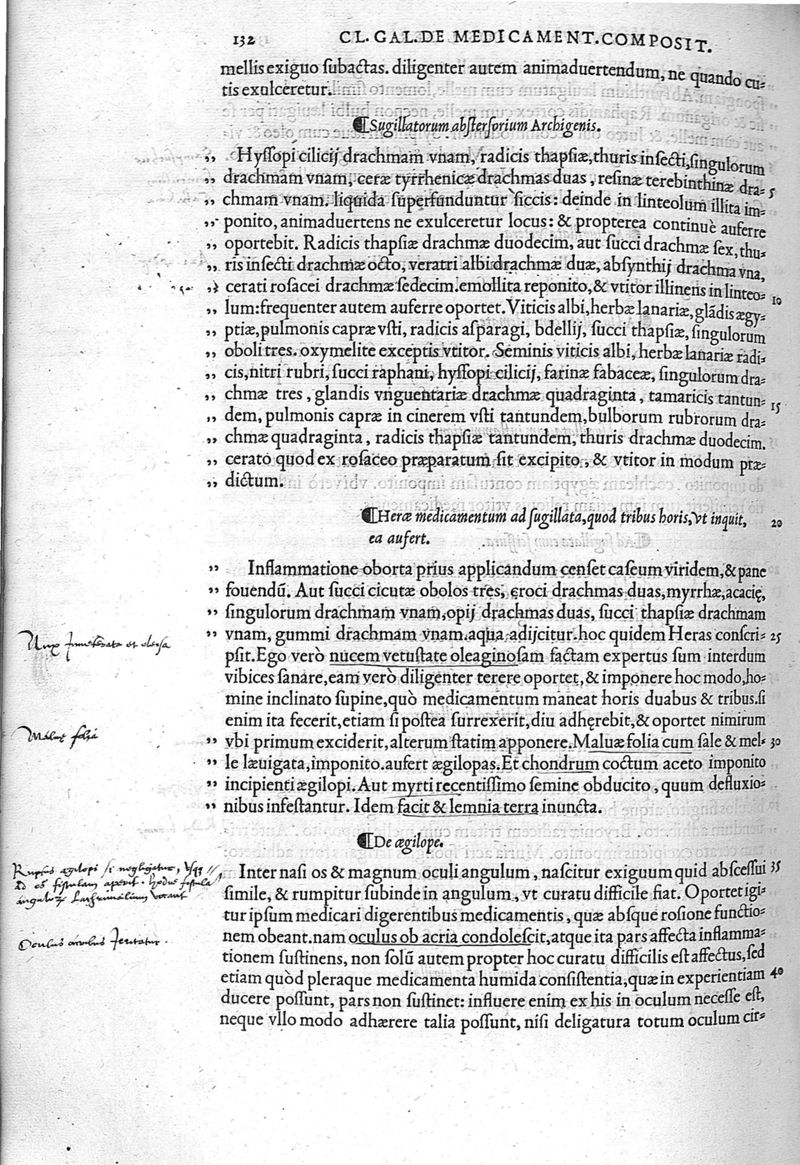 132 CL. GAL. DE MEDICAMENT. COMPOSIT.
mellis exiguo ſubactas. diligenter autem animaduertendum, ne quando cu⸗
tis exulceretur.
¶Sugillatorum abſterſorium Archigenis.
„ Hyſſopi cilicij drachmam vnam, radicis thapſiæ, thuris inſecti, ſingulorum
„ drachmam vnam, ceræ tyrrhenicæ drachmas duas, reſinæ terebinthinæ dra⸗ 5
„ chmam vnam. liquida ſuperfunduntur ſiccis: deinde in linteolum illita im⸗
„ ponito, animaduertens ne exulceretur locus: & propterea continuè auferre
„ oportebit. Radicis thapſiæ drachmæ duodecim, aut ſucci drachmæ ſex, thu⸗
„ ris inſecti drachmæ octo, veratri albi drachmæ duæ, abſynthij drachma vna,
„ cerati roſacei drachmæ ſedecim. emollita reponito, & vtitor illinens in linteo⸗ 10
„ lum: frequenter autem auferre oportet. Viticis albi, herbæ lanariæ, glādis ægy⸗
„ ptiæ, pulmonis capræ vſti, radicis aſparagi, bdellij, ſucci thapſiæ, ſingulorum
„ oboli tres. oxymelite exceptis vtitor. Seminis viticis albi, herbæ lanariæ radi⸗
„ cis, nitri rubri, ſucci raphani, hyſſopi cilicij, farinæ fabaceæ, ſingulorum dra⸗
„ chmæ tres, glandis vnguentariæ drachmæ quadraginta, tamaricis tantun⸗ 15
„ dem, pulmonis capræ in cinerem vſti tantundem, bulborum rubrorum dra⸗
„ chmæ quadraginta, radicis thapſiæ tantundem, thuris drachmæ duodecim.
„ cerato quod ex roſaceo præparatum ſit excipito, & vtitor in modum præ⸗
„ dictum.
¶Heræ medicamentum ad ſugillata, quod tribus horis, vt inquit, 20
ea aufert.
„ Inflammatione oborta prius applicandum cenſet caſeum viridem, & pane
„ fouendū. Aut ſucci cicutæ obolos tres, croci drachmas duas, myrrhæ, acacię,
„ ſingulorum drachmam vnam, opij drachmas duas, ſucci thapſiæ drachmam
„ vnam, gummi drachmam vnam. aqua adijcitur. hoc quidem Heras conſcri⸗ 25
pſit. Ego verò nucem vetuſtate oleaginoſam factam expertus ſum interdum
vibices ſanare, eam verò diligenter terere oportet, & imponere hoc modo, ho⸗
mine inclinato ſupine, quò medicamentum maneat horis duabus & tribus. ſi
enim ita fecerit, etiam ſi poſtea ſurrexerit, diu adhęrebit, & oportet nimirum
„ vbi primum exciderit, alterum ſtatim apponere. Maluæ folia cum ſale & mel⸗ 30
„ le læuigata, imponito. aufert ægilopas. Et chondrum coctum aceto imponito
„ incipienti ægilopi. Aut myrti recentiſſimo ſemine obducito, quum defluxio⸗
„ nibus infeſtantur. Idem facit & lemnia terra inuncta.
¶De ægilope.
Inter naſi os & magnum oculi angulum, naſcitur exiguum quid abſceſſui 35
ſimile, & rumpitur ſubinde in angulum, vt curatu difficile fiat. Oportet igi⸗
tur ipſum medicari digerentibus medicamentis, quæ abſque roſione functio⸗
nem obeant. nam oculus ob acria condoleſcit, atque ita pars affecta inflamma⸗
tionem ſuſtinens, non ſolū autem propter hoc curatu difficilis eſt affectus, ſed
etiam quòd pleraque medicamenta humida conſiſtentia, quæ in experientiam 40
ducere poſſunt, pars non ſuſtinet: influere enim ex his in oculum neceſſe eſt,
neque vllo modo adhærere talia poſſunt, niſi deligatura totum oculum cir⸗
Nux Inueterata et oleosa
Maluę folia
Ruptus ęgilopi si negligatur, usq
ad os fistulam aperit.
angulos Lachrimalium vocant
Oculus acribus Irritatur.